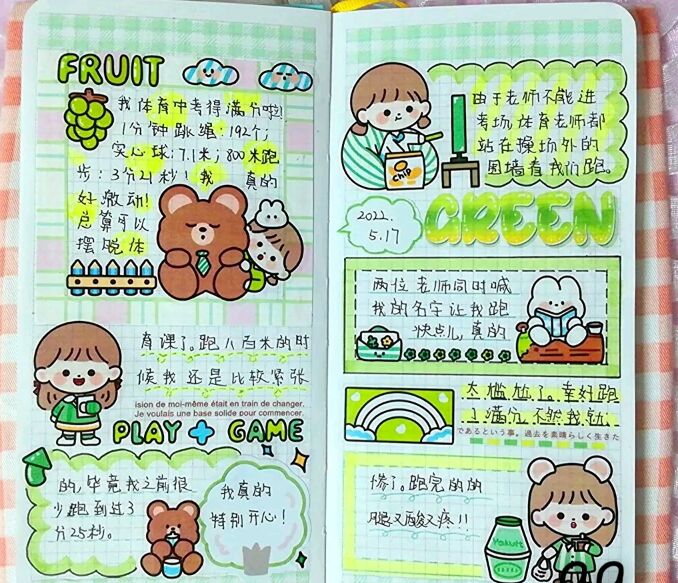 FRUIT
我体育中考得满分啦!
1分钟跳绳:192个;
实心球:7.1米;800米跑
步:3分21秒!我 真的
好激动!
总算可以
摆脱体
育课了。跑八百米的时
候我还是比较紧张
ision de moi-même était en train de changer.
Je voulais une base solide pour commencer.
PLAY + GAME
的,毕竟我之前很
少跑到过3
分25秒。
我真的
特别开心!
由于老师不能进
考场,体育老师都
站在操场外的
围墙看我们跑。
chip
GREEN
2022.
5.17
两位老师同时喊
我的名字让我跑
快点儿,真的
太尴尬了。幸好跑
了满分,不然我就
であるという事。過去を素晴らしく生きた
惨了。跑完的的
腿又酸又疼!!
Yakult